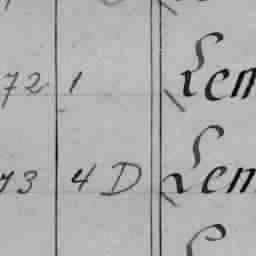 72 1 Lem
73 4 D Lem